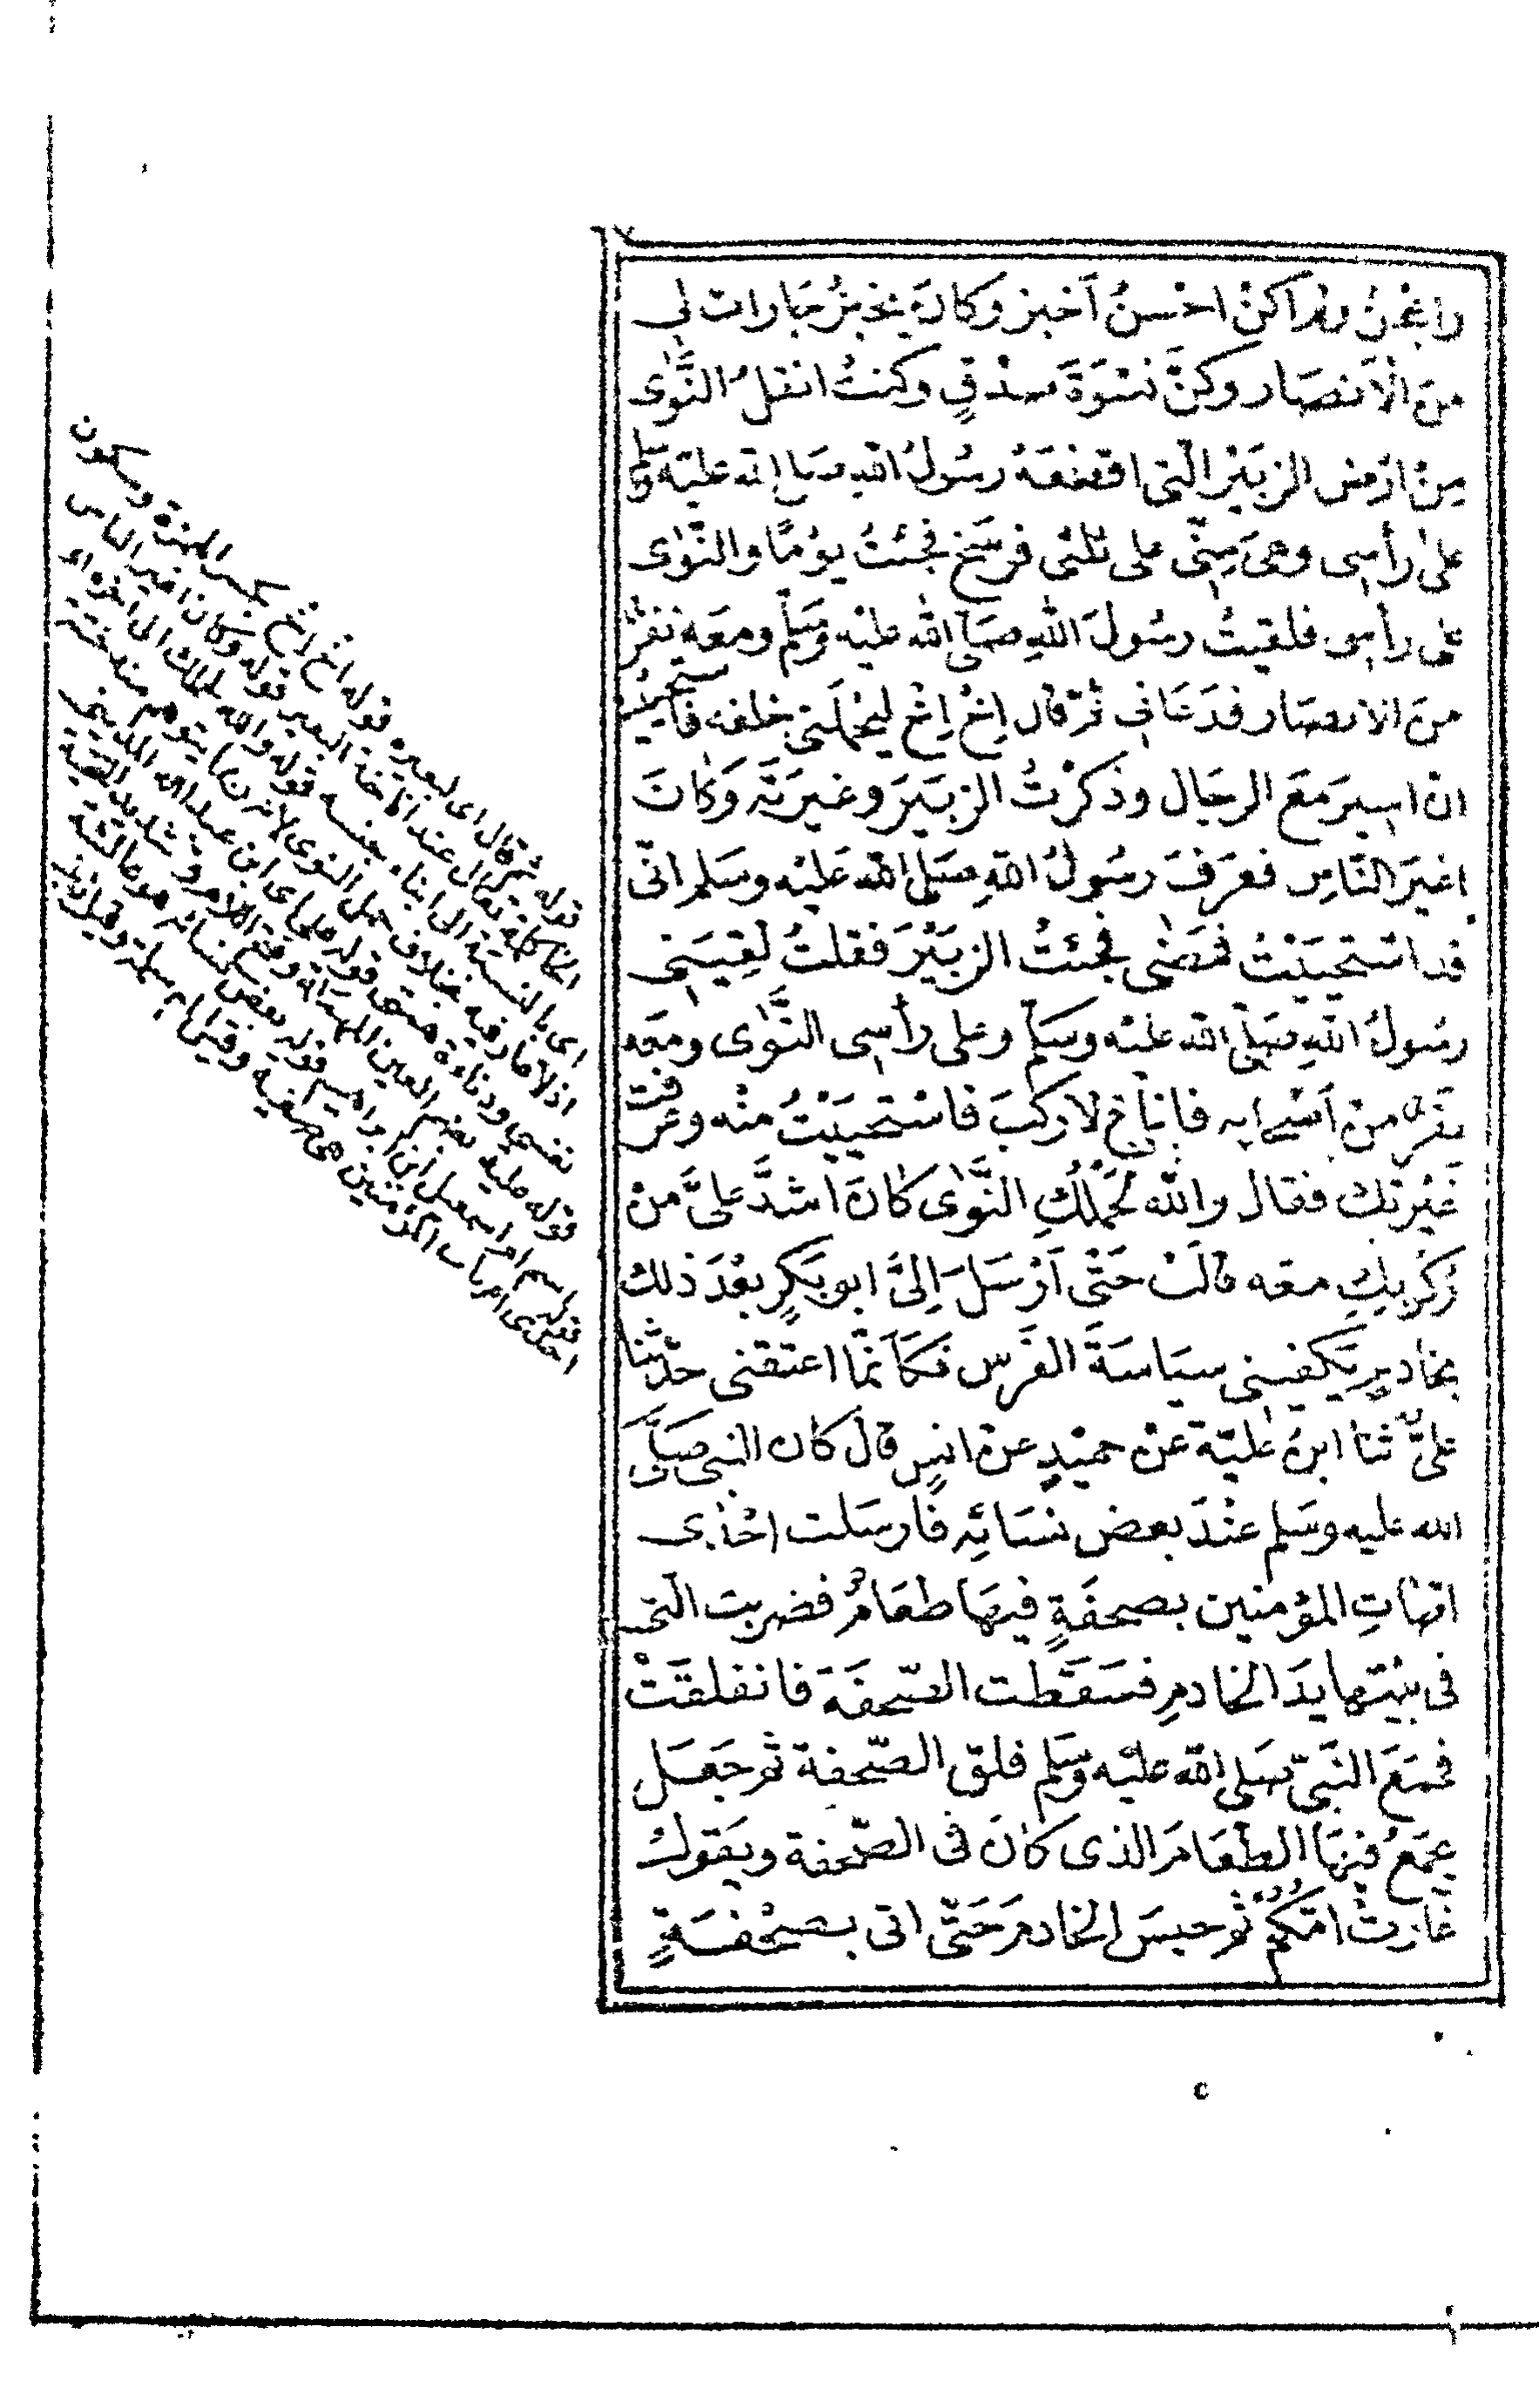 واعجن ولم اكن احسن اخبز وكان يخبز جارات لي
من الانصار وكن نسوة صدق وكنت انقل النوى
من ارض الزبير التي اقطعه رسول الله صلى الله عليه وسلم
على رأسي وهي مني على ثلثي فرسخ فجئت يوما والنوى
على رأسي فلقيت رسول الله صلى الله عليه وسلم ومعه نفر
من الانصار فدعاني ثم قال اخ اخ ليحملني خلفه فاستحييت
ان اسير مع الرجال وذكرت الزبير وغيرته وكان
اغير الناس فعرف رسول الله صلى الله عليه وسلم اني
قد استحييت فمضى فجئت الزبير فقلت لقيني
رسول الله صلى الله عليه وسلم وعلى رأسي النوى ومعه
نفر من اصحابه فاناخ لاركب فاستحييت منه وعرفت
غيرتك فقال والله لحملك النوى كان اشد علي من
ركوبك معه قالت حتى ارسل الي ابو بكر بعد ذلك
بخادم يكفيني سياسة الفرس فكانما اعتقني حدثنا
علي ثنا ابن علية عن حميد عن انس قال كان النبي صلى
الله عليه وسلم عند بعض نسائه فارسلت احدى
امهات المؤمنين بصحفة فيها طعام فضربت التي
في بيتها يد الخادم فسقطت الصحفة فانفلقت
فجمع النبي صلى الله عليه وسلم فلق الصحفة ثم جعل
يجمع فيها الطعام الذي كان في الصحفة ويقول
غارت امكم ثم حبس الخادم حتى اتى بصحفة
قوله ثم قال اى لبعيره قوله اخ اخ بكسر الهمزة وسكون
الخا كلمة تقال عند اناخة البعير قوله وكان اغير الناس
اى بالنسبة الى ابناء جنسه قوله والله لحملك الى اخره
قوله علية بضم العين المهملة وفتح اللام وتشديد التحتية
اسم ام اسمعيل ابن ابراهيم قوله بعض نسائه هو عائشة